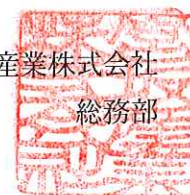 産業株式会社
総務部